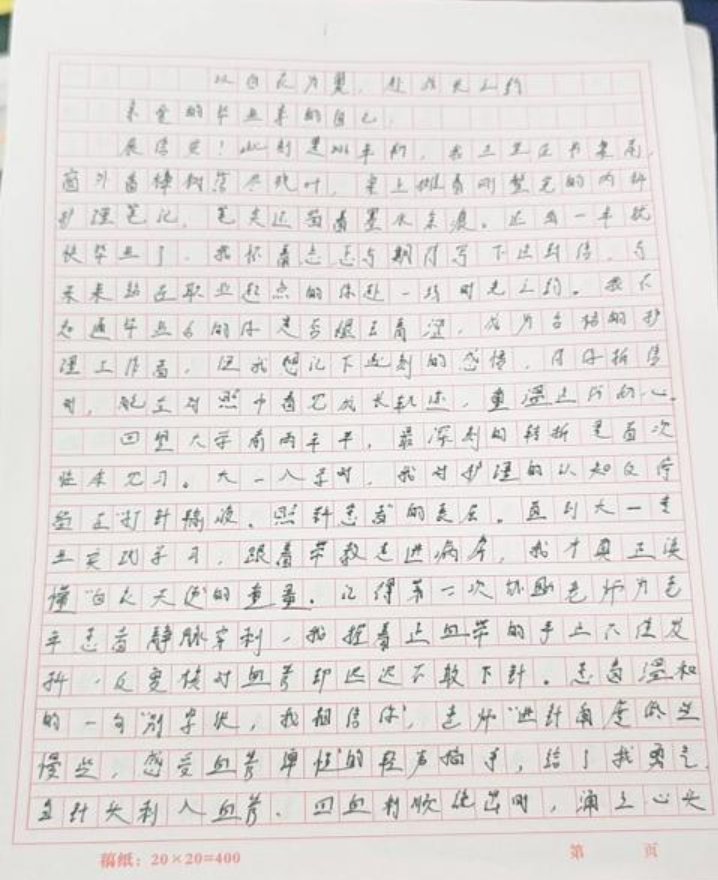 以白衣为翼，赴成长之约
亲爱的毕业季的自己：
展信安！此刻是 年 ，我正坐在书桌前，
窗外香樟树落尽残叶，桌上摊着刚整完的内科
护理笔记，笔尖还留着墨水余痕。还有一年就
快毕业了，我怀着忐忑与期待写下这封信，与
未来站在职业起点的你赴一场时光之约。我不
知道毕业后的你是否褪去青涩，成为合格的护
理工作者，但我想记下此刻的感悟，待你拆信
时，能在对照中看见成长轨迹，重温这份初心。
回望大学前两年半，最深刻的转折是首次
临床见习。大一入学时，我对护理的认知仅停
留在“打针输液、照料患者”的表层。直到大一专
业实践学习，跟着带教走进病房，我才真正读
懂“白衣天使”的重量。记得第一次协助老师为老
年患者静脉穿刺，我握着止血带的手止不住发
抖，反复核对血管却迟迟不敢下针。患者温和
的一句“别紧张，我相信你”，老师“进针角度放
慢些，感受血管弹性”的轻声指导，给了我勇气。
当针头刺入血管、回血顺 时，涌上心头
稿纸：20×20=400
第 页